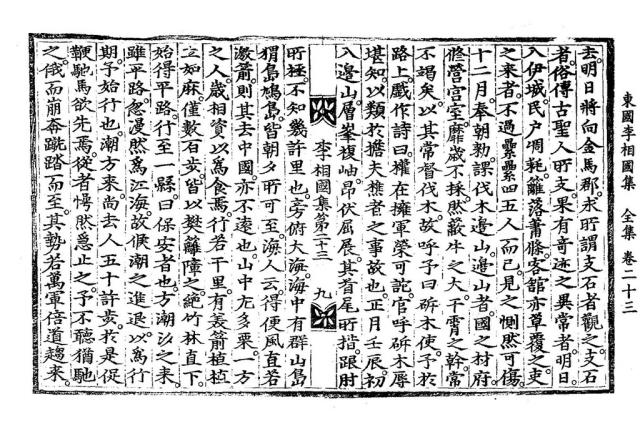 東國李相國集 全集 卷二十三
去。明日將向金馬郡。求所謂支石者觀之。支石
者。俗傳古聖人所支。果有奇迹之異常者。明日
入伊城。民戶凋耗。籬落蕭條。客館亦草覆之。吏
之來者。不過纍纍四五人而已。見之惻然可傷。
十二月。奉朝勑。課伐木邊山。邊山者。國之材府。
修營宮室。靡歲不採。然蔽牛之大。干霄之幹。常
不竭矣。以其常督伐木。故呼予曰斫木使。予於
路上。戲作詩曰。權在擁軍榮可詑。官呼斫木辱
堪知。以類於擔夫樵者之事故也。正月壬辰。初
入邊山。層峯複岫。昂伏屈展。其首尾所措。跟肘
李相國集第二十三 九
所極。不知幾許里也。旁俯大海。海中有群山島
猬島鳩島。皆朝夕所可至。海人云得便風直若
激箭。則其去中國亦不遠也。山中尤多栗。一方
之人。歲相資以爲食焉。行若干里。有美箭植植
立如麻。僅數百步。皆以樊籬障之。絶竹林直下。
始得平路。行至一縣。曰保安者也。方潮汐之來。
雖平路忽漫然爲江海。故候潮之進退以爲行
期。予始行也。潮方來。尚去人五十許步。於是促
鞭馳馬。欲先焉。從者愕然急止之。予不聽猶馳
之。俄而崩奔蹴踏而至。其勢若萬軍倍道趨來。